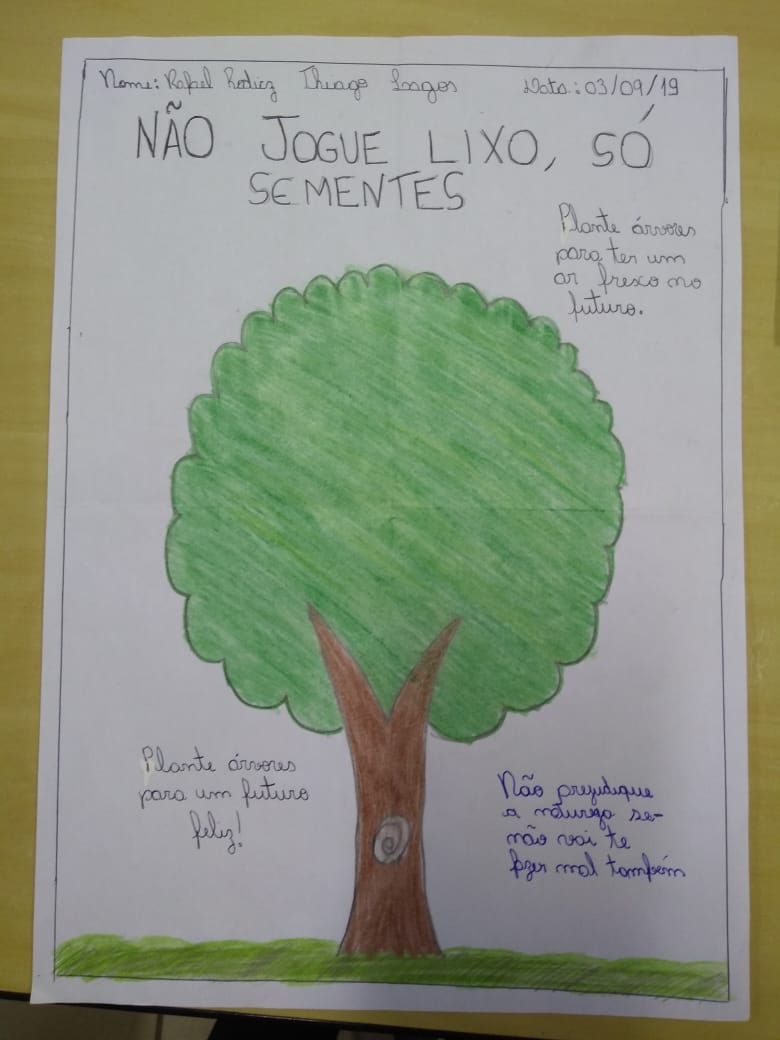 Nome: Rafael Rodriz Thiago Lagos Data: 03/09/19
NÃO JOGUE LIXO, SÓ
SEMENTES
Plante árvores
para ter um
ar fresco no
futuro.
Plante árvores
para um futuro
feliz!
Não prejudique
a natureza se-
não vai te
fazer mal também